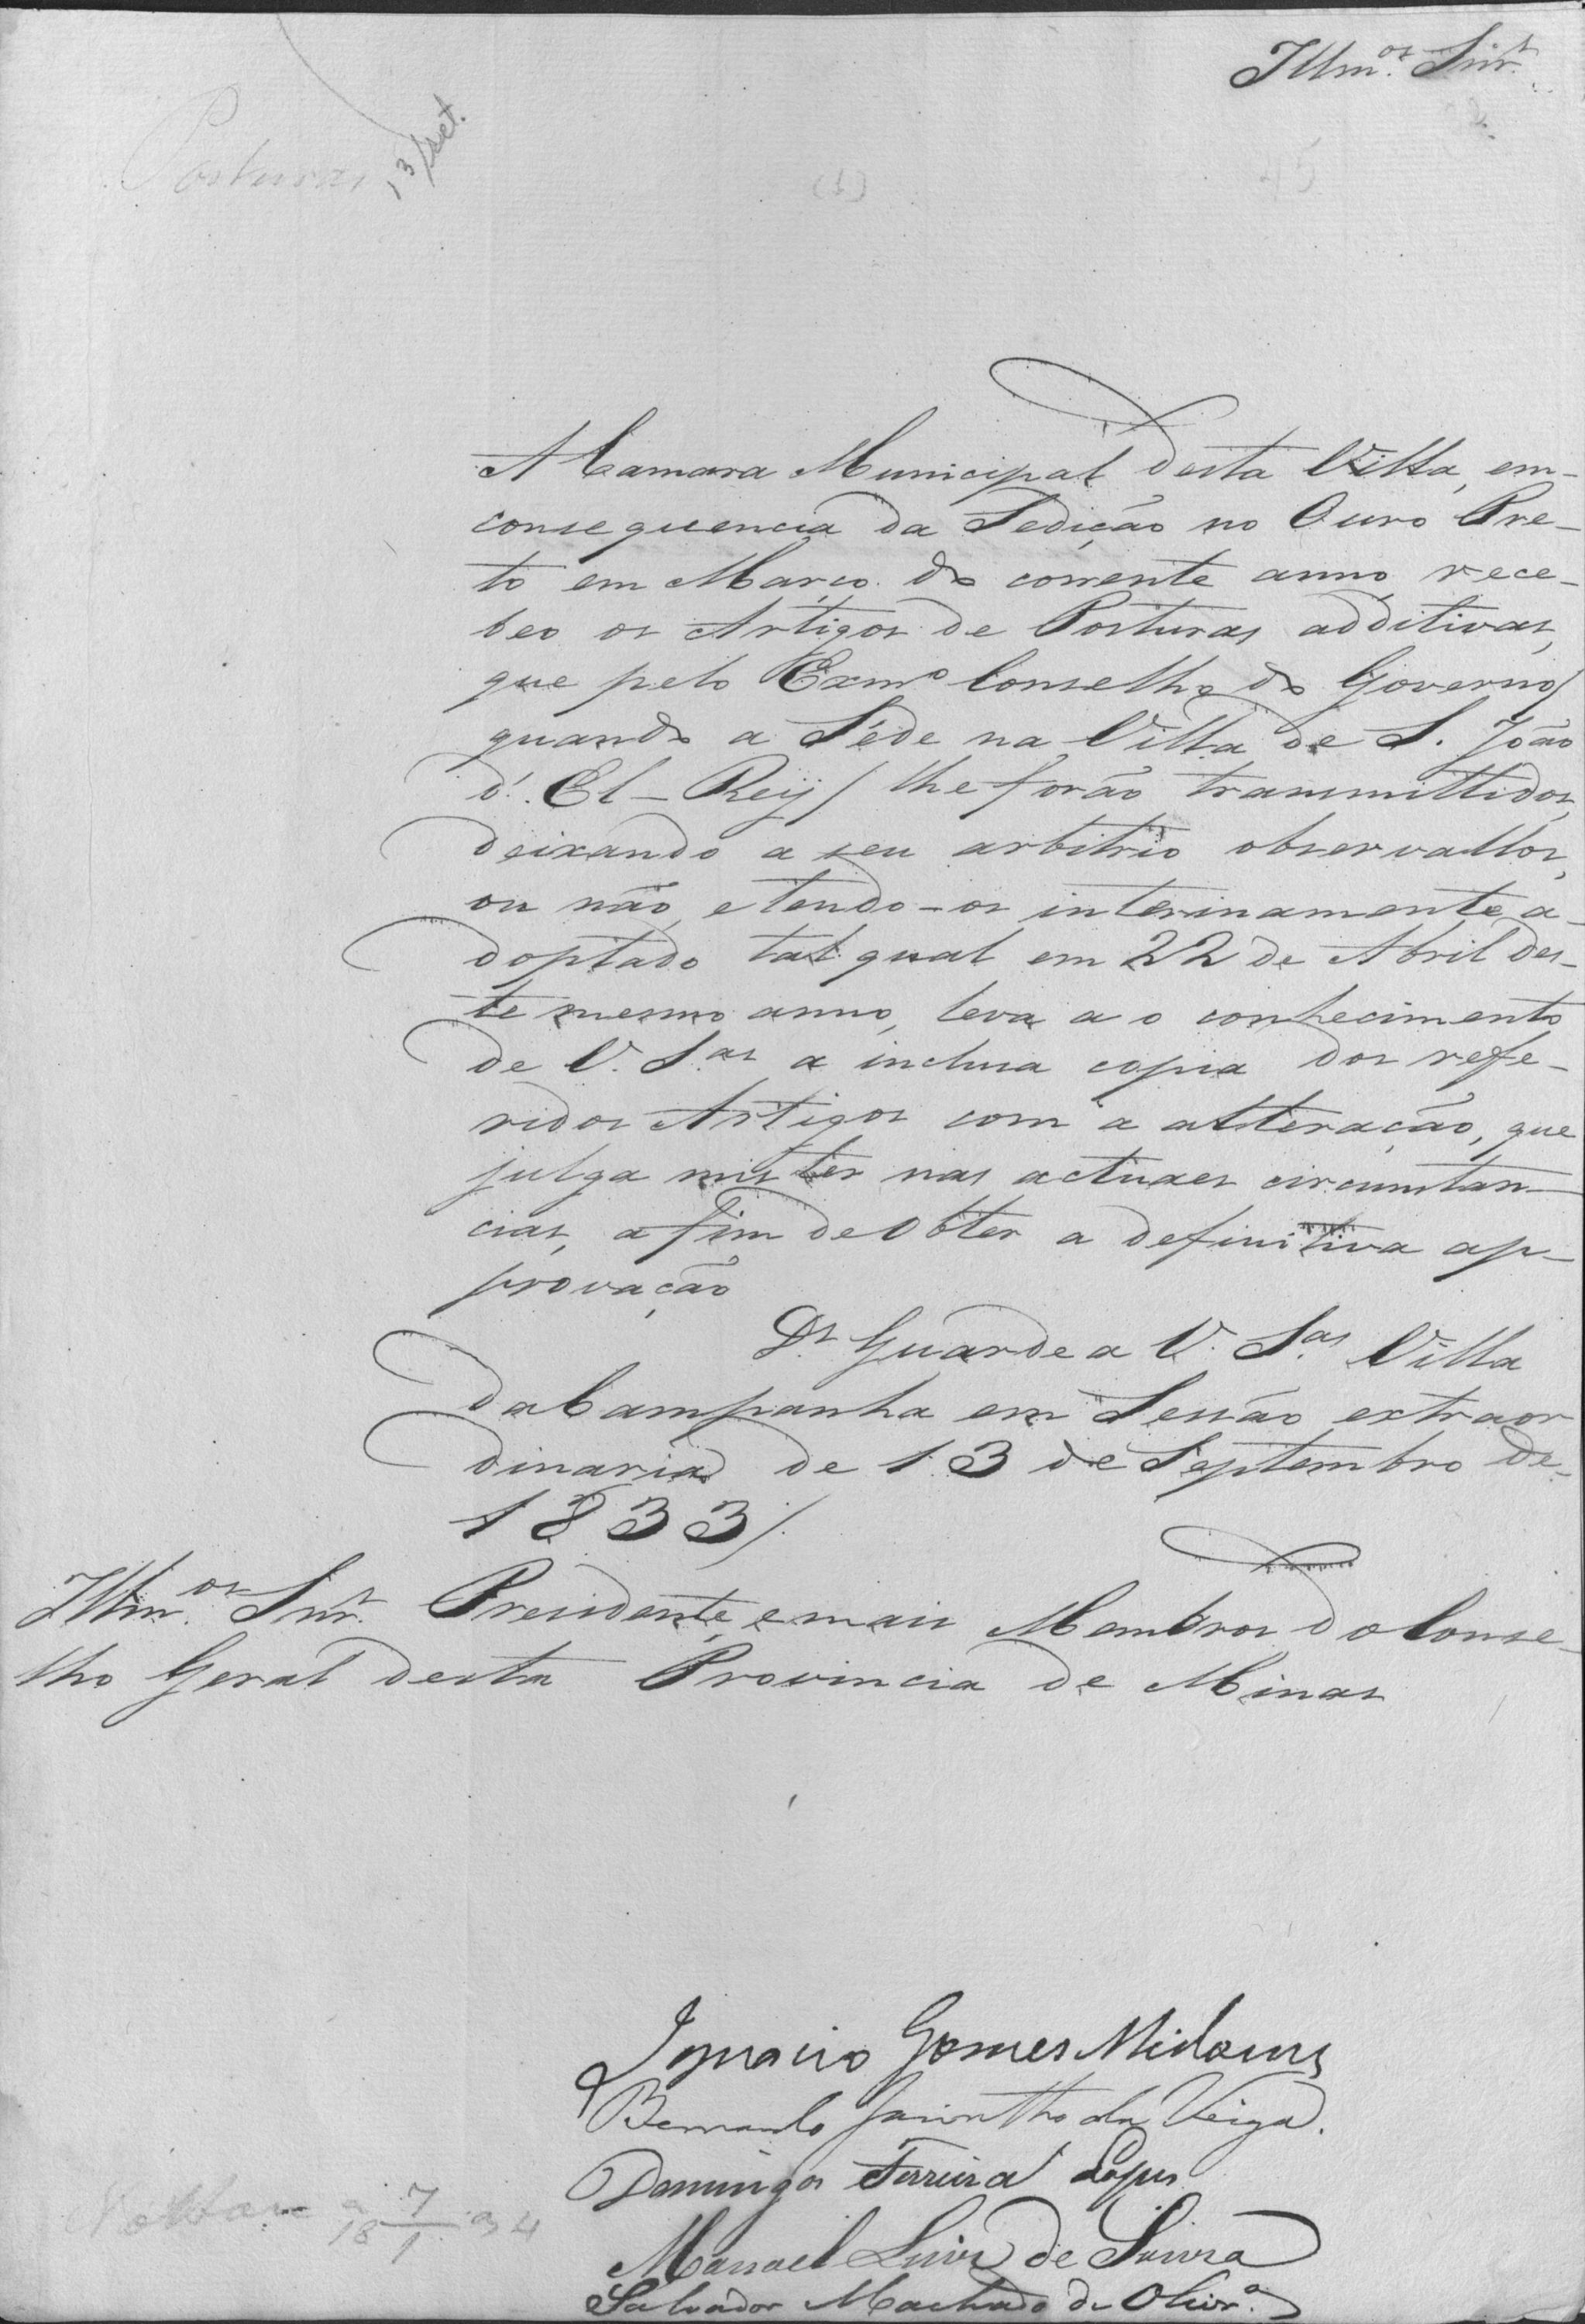 Illm.os Snr.s
Posturas
13/set.
(1)
45
A Camara Municipal desta Villa, em-
consequencia da Sedição no Ouro Pre-
to em Março do corrente anno, rece-
beo os Artigos de Posturas additivas,
que pelo Exm.o Conselho do Governo/
quando a Séde na Villa de S. João
d'. El-Rey/ lhe forão transmittidos,
deixando a seu arbitrio observallos,
ou não, e tendo-os interinamente a-
doptado tal qual em 22 de Abril des-
te mesmo anno, leva a o conhecimento
de V. S.as a inclusa copia dos refe-
ridos Artigos com a alteração, que
julga mister nas actuaes circumstan-
cias, a fim de obter a definitiva ap-
provação
D.s Guarde a V. S.as Villa
da Campanha em Sessão extraor
dinaria de 13 de Septembro de-
1833/.
Illm.os Snr.s Presidente, e mais Membros do Conse-
lho Geral desta Provincia de Minas
Ignacio Gomes Midoens
Bernardo Jacintho da Veiga.
Domingos Ferreira Lopes
Manoel Luiz de Souza
Salvador Machado de Olivr.a